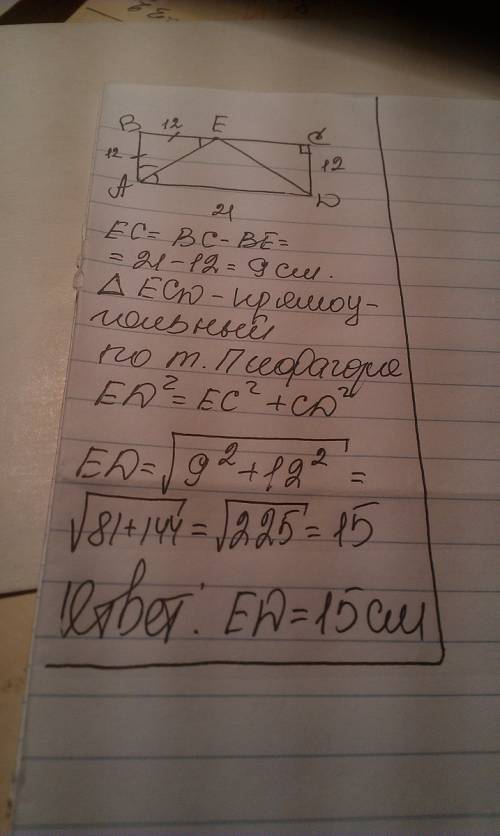 B 12 E C
12 12
A D
21
EC = BC - BE =
= 21 - 12 = 9 см.
△ ECD - прямоу-
гольный
по т. Пифагора
ED² = EC² + CD²
ED = √9² + 12² =
√81 + 144 = √225 = 15
Ответ: ED = 15 см